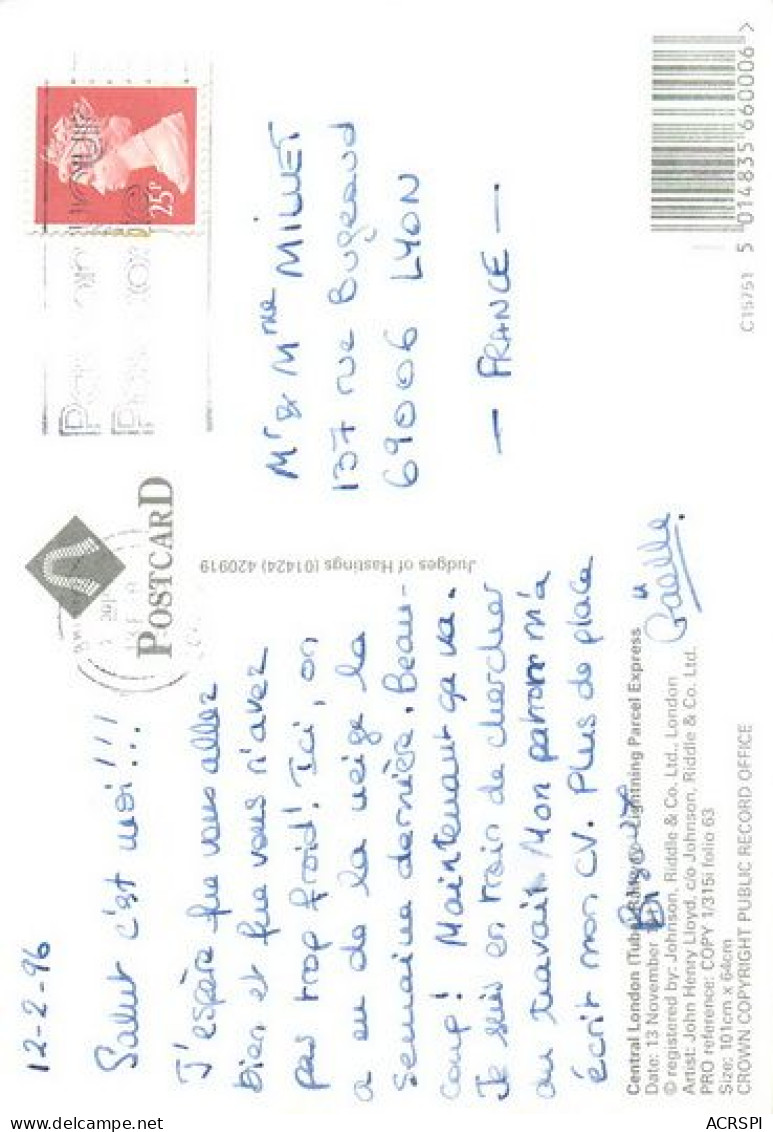 12-2-96
Salut c'est moi!!!
J'espère que vous allez
bien et que vous n'avez
pas trop froid! Ici, on
a eu de la neige la
semaine dernière. Beau-
coup! Maintenant ça va.
Je suis en train de chercher
du travail. Mon patron m'a
écrit mon CV. Plus de place
Gaëlle.
Central London (Tube) Railway - Lightning Parcel Express
Date: 13 November
© registered by: Johnson, Riddle & Co. Ltd., London
Artist: John Henry Lloyd, c/o Johnson, Riddle & Co. Ltd.
PRO reference: COPY 1/315i folio 63
Size: 101cm x 64cm
CROWN COPYRIGHT PUBLIC RECORD OFFICE
POSTCARD
Judges of Hastings (01424) 420919
25P
Mr & Mme MILLET
137 rue Bugeaud
69006 LYON
— FRANCE —
C15751
5 014835 660006 >
delcampe.net
ACRSPI